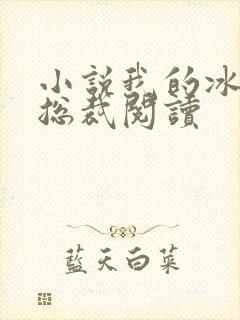 小説我的冰
总裁閱讀
藍天白菜